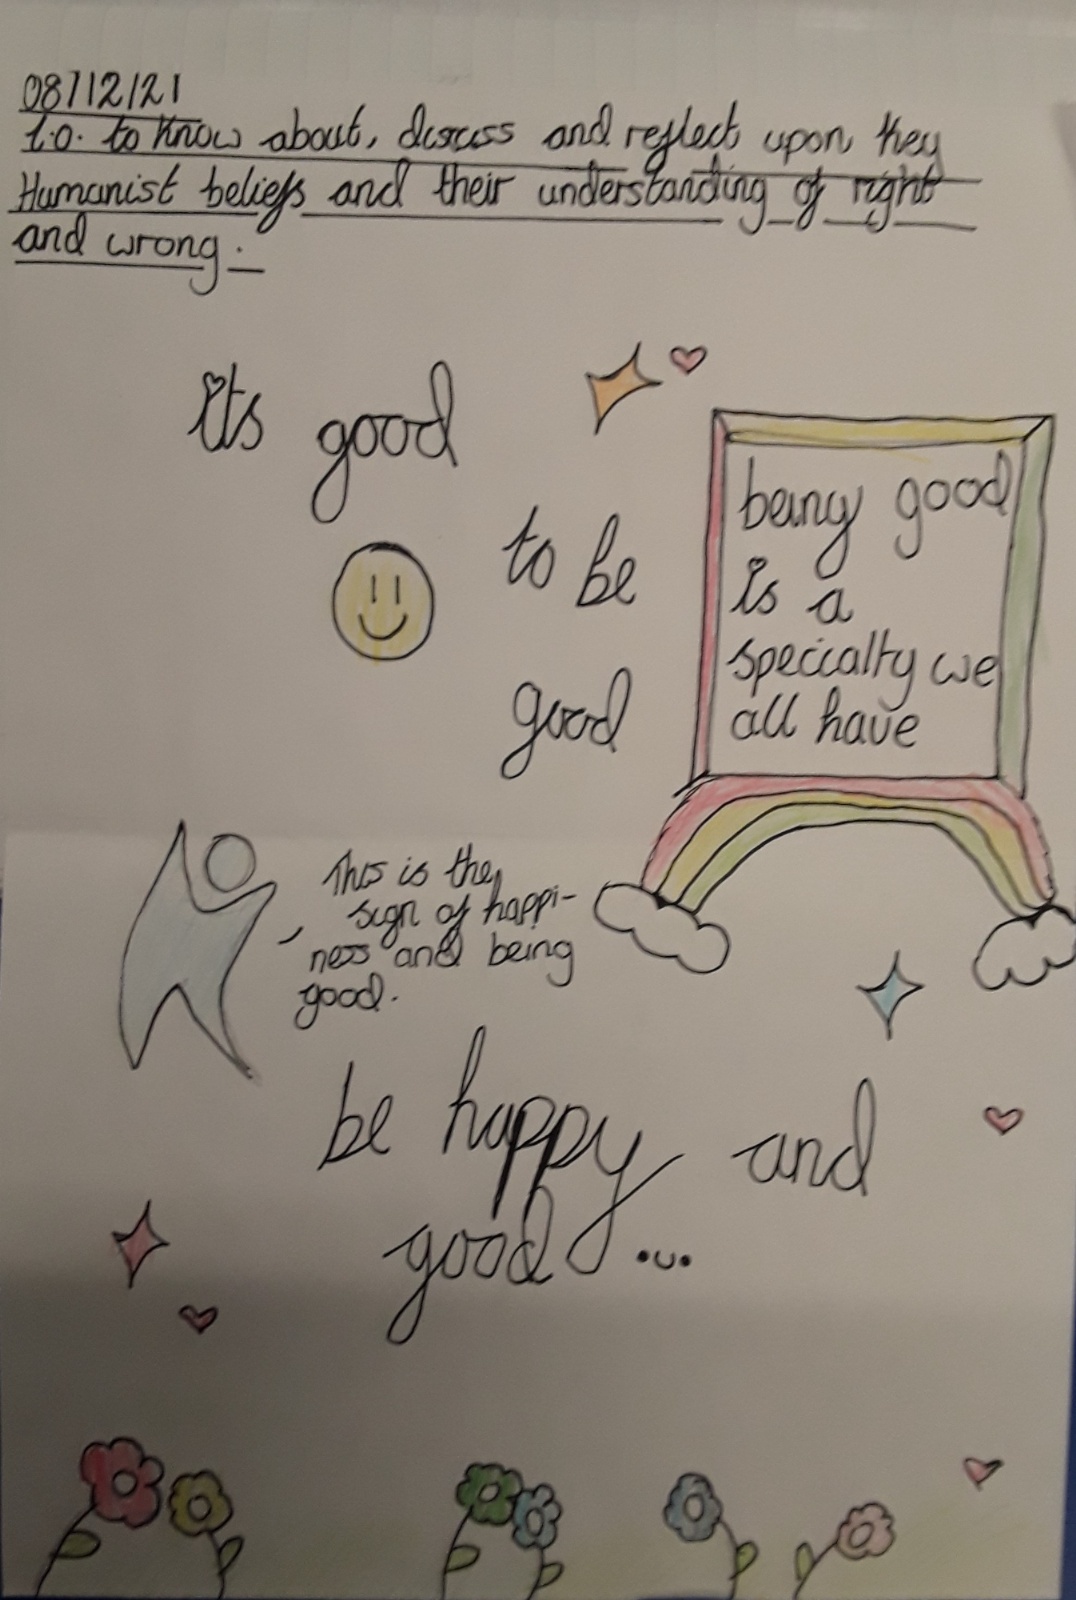 08/12/21
L.O. to know about, discuss and reflect upon they
Humanist beliefs and their understanding of right
and wrong.
its good
to be
good
being good
is a
specialty we
all have
This is the
sign of happi-
ness and being
good.
be happy and
good